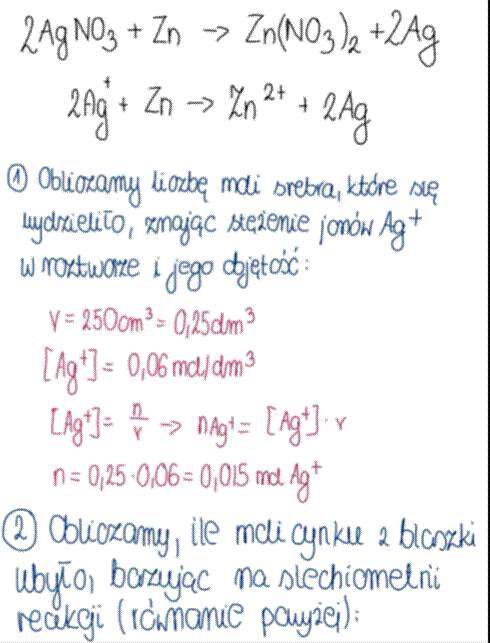 2AgNO₃ + Zn → Zn(NO₃)₂ + 2Ag
2Ag⁺ + Zn → Zn²⁺ + 2Ag
① Obliczamy liczbę moli srebra, które się
wydzieliło, znając stężenie jonów Ag⁺
w roztworze i jego objętość:
V = 250cm³ = 0,25dm³
[Ag⁺] = 0,06 mol/dm³
[Ag⁺] = n/V → nAg⁺ = [Ag⁺] · V
n = 0,25 · 0,06 = 0,015 mol Ag⁺
② Obliczamy, ile moli cynku z blaszki
ubyło, bazując na stechiometrii
reakcji (równanie powyżej):